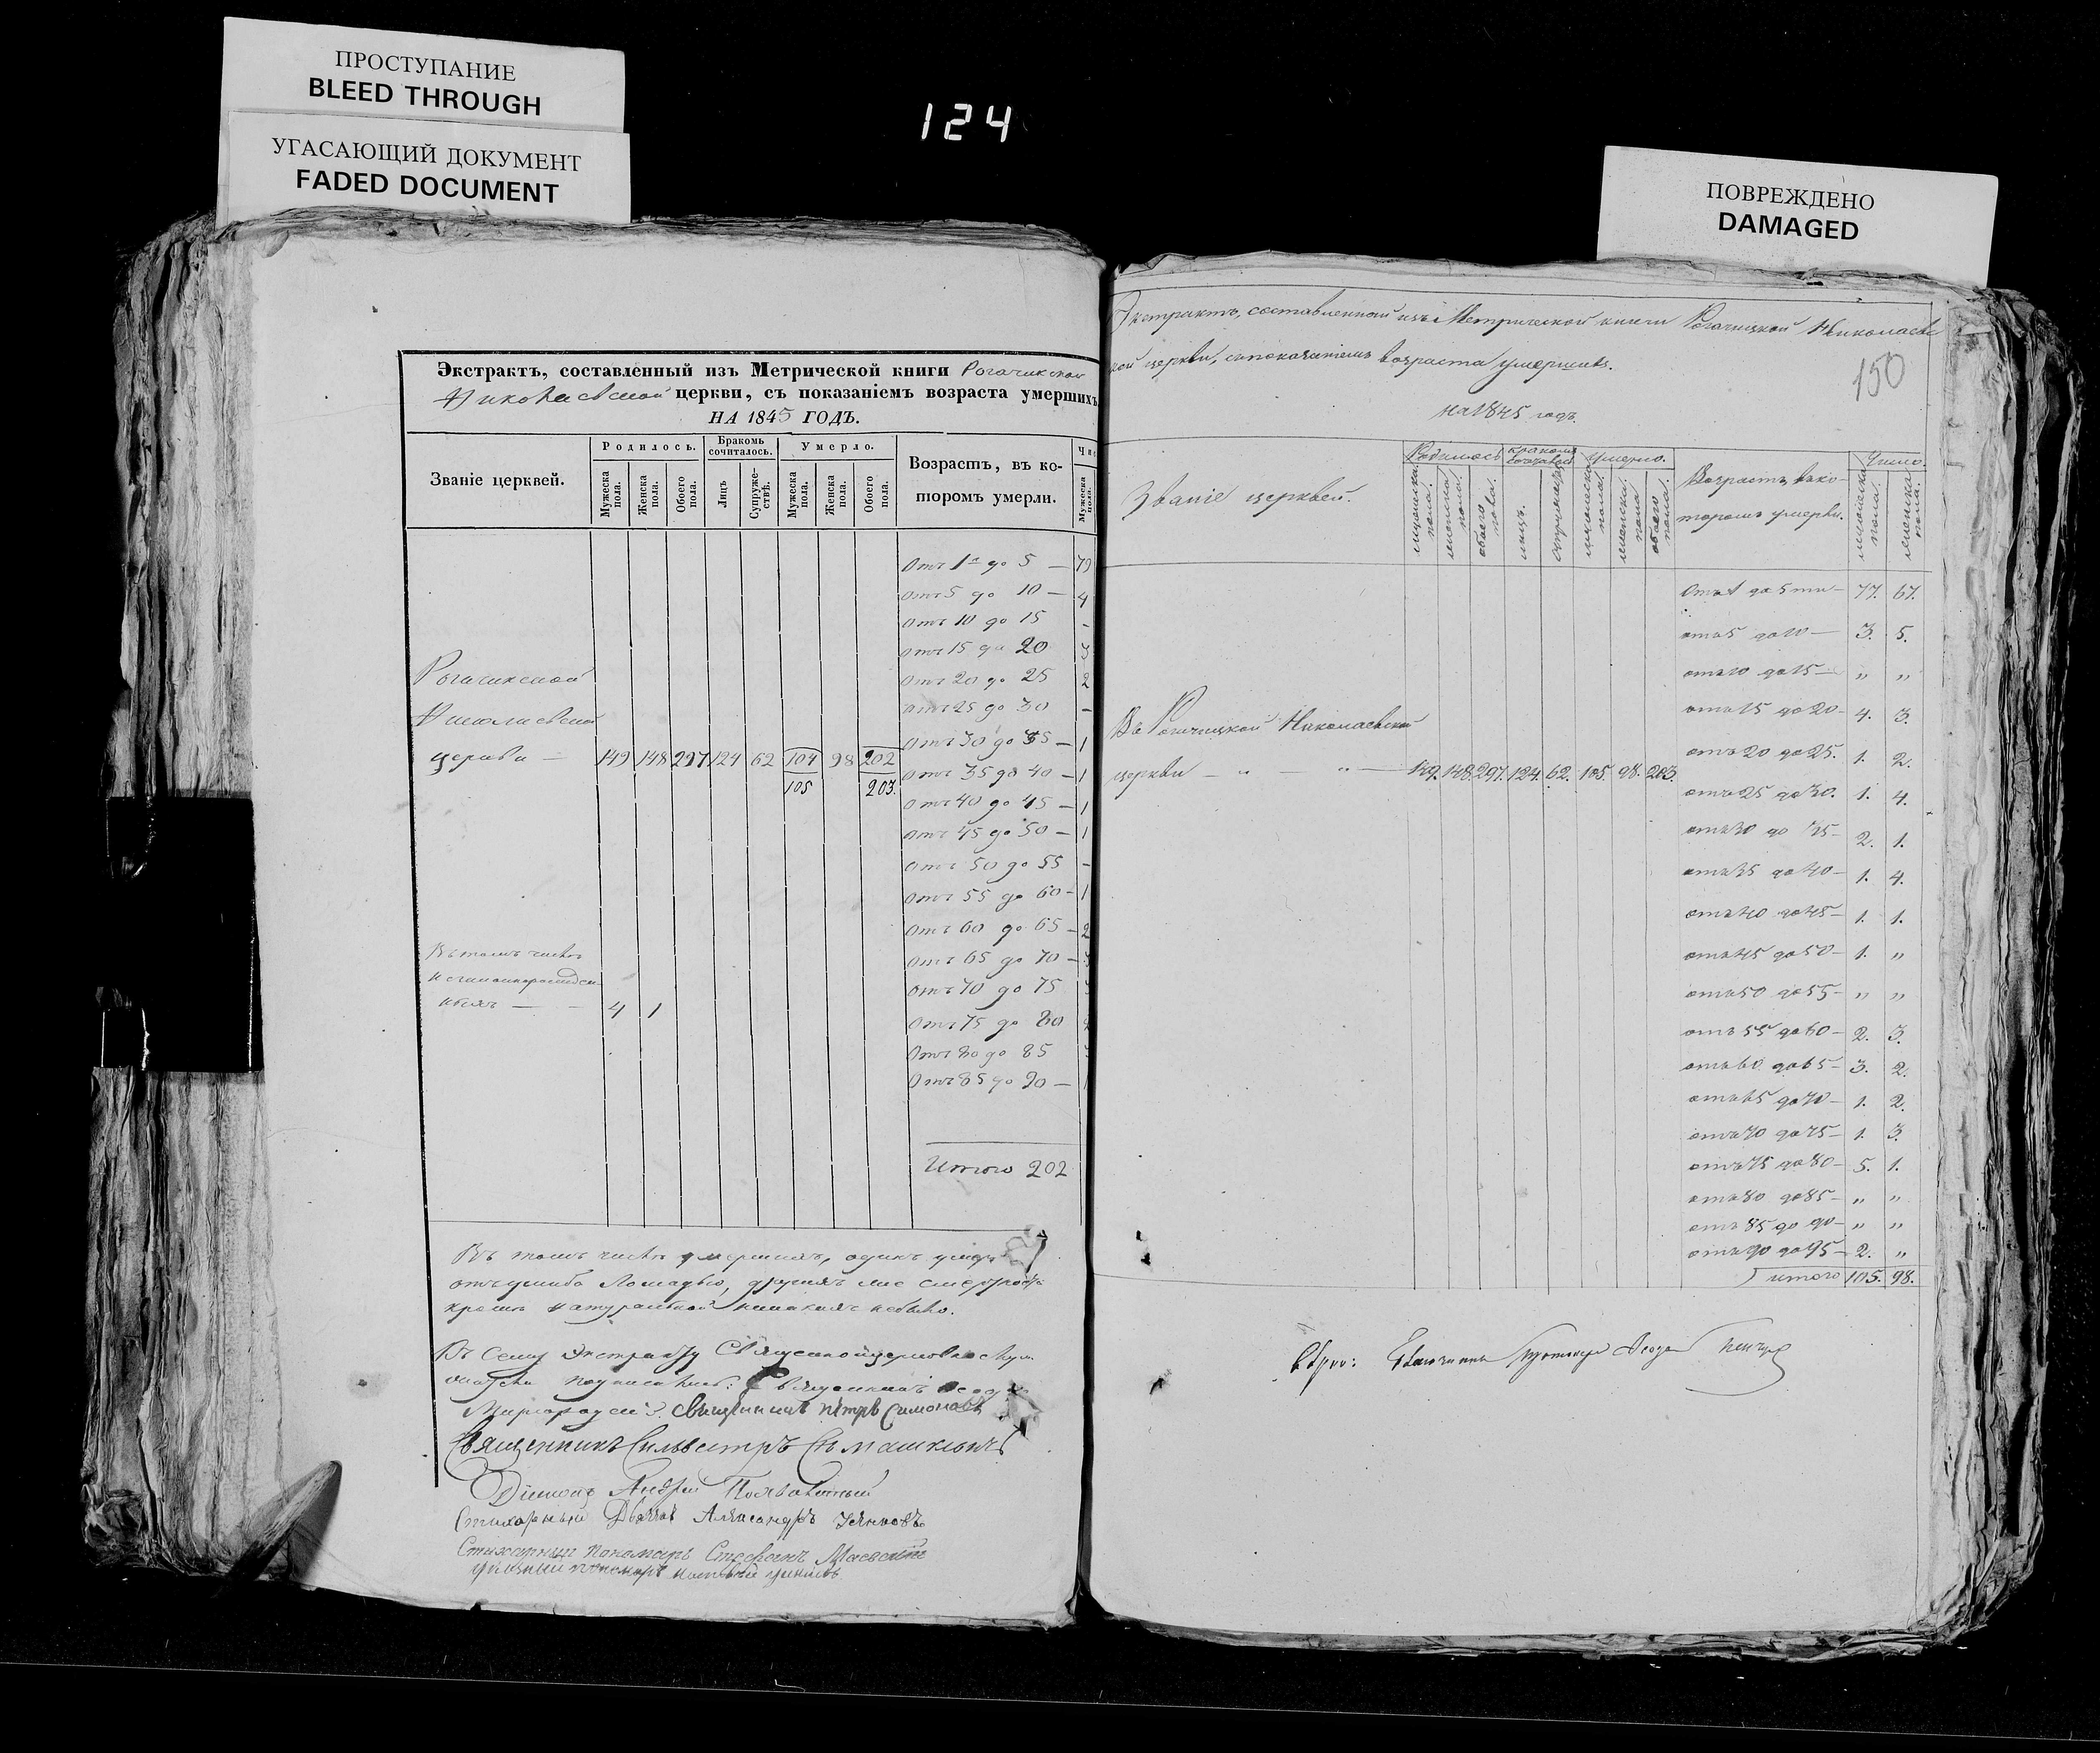 ПРОСТУПАНИЕ
BLEED THROUGH
УГАСАЮЩИЙ ДОКУМЕНТ
FADED DOCUMENT
124
ПОВРЕЖДЕНО
DAMAGED
Экстрактъ, составленный изъ Метрической книги Рогачикской
Николаевской церкви, съ показаніемъ возраста умершихъ
НА 1845 ГОДЪ.
Званіе церквей.
Родилось.
Бракомъ сочиталось.
Умерло.
Возрастъ, въ ко-
торомъ умерли.
Чис
Мужеска пола.
Женска пола.
Обоего пола.
Лицъ
Супруже-ствъ.
Мужеска пола.
Женска пола.
Обоего пола.
Мужеска пола.
Отъ 1 до 5 —
Отъ 5 до 10 — 4
Отъ 10 до 15 -
Отъ 15 до 20 3
Отъ 20 до 25 2
Отъ 25 до 30 -
Отъ 30 до 35 — 1
Отъ 35 до 40 — 1
Отъ 40 до 45 — 1
Отъ 45 до 50 — 1
Отъ 50 до 55 -
Отъ 55 до 60 - 1
Отъ 60 до 65 - 2
Отъ 65 до 70 - 3
Отъ 70 до 75
Отъ 75 до 80
Отъ 80 до 85
Отъ 85 до 90 —
Итого 202
Рогачикской
Николаевской
церкви — 149 148 297 124 62 104 98 202
105 203.
Въ томъ числѣ
незаконнорожден
ныхъ — — 4 1
Въ томъ числѣ умершихъ, одинъ умеръ
отъ ушиба Лошадью, другихъ
кромѣ натуральной никакихъ небыло.
Въ Сему Экстракту
Священникъ
Священникъ Петръ Симоновъ
Священникъ Сильвестръ Семашкевичъ
Діаконъ Андрей
Стихарный Дьячокъ Александръ
Стихарный Пономарь Стефанъ Маевскій
Экстрактъ, составленный изъ Метрической книги Рогачицкой Николаевс
кой церкви, съ показаніемъ возраста умершихъ.
на 1845 годъ.
150
Званіе церквей.
Родилось
бракомъ
умерло.
Возрастъ въ ко-
торомъ умерли.
Число.
мужеска пола.
женска пола.
обоего пола.
лицъ.
супружествъ
мужеска пола.
женска пола.
обоего пола.
мужеска пола.
женска пола.
Въ Рогачицкой Николаевской
церкви — „ — „ — 149. 148. 297. 124. 62. 105. 98. 203.
отъ 1 до 5 ти — 77. 67.
отъ 5 до 10 — 3. 5.
отъ 10 до 15 — „ „
отъ 15 до 20 - 4. 3.
отъ 20 до 25. 1. 2.
отъ 25 до 30. 1. 4.
отъ 30 до 35 - 2. 1.
отъ 35 до 40 - 1. 4.
отъ 40 до 45 - 1. 1.
отъ 45 до 50 - 1. „
отъ 50 до 55 - „ „
отъ 55 до 60 - 2. 3.
отъ 60 до 65 - 3. 2.
отъ 65 до 70 - 1. 2.
отъ 70 до 75 - 1. 3.
отъ 75 до 80 - 5. 1.
отъ 80 до 85 - „ „
отъ 85 до 90 - „ „
отъ 90 до 95 - 2. „
итого 105. 98.